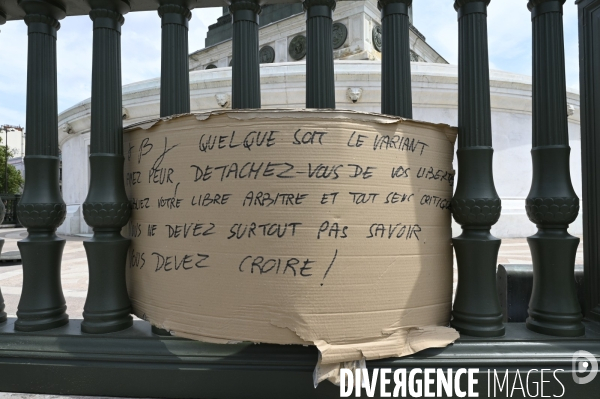 β) QUELQUE SOIT LE VARIANT
AYEZ PEUR, DETACHEZ-VOUS DE VOS LIBERTÉS
VOTRE LIBRE ARBITRE ET TOUT SENS CRITIQUE
NE DEVEZ SURTOUT PAS SAVOIR.
VOUS DEVEZ CROIRE!
DIVERGENCE IMAGES